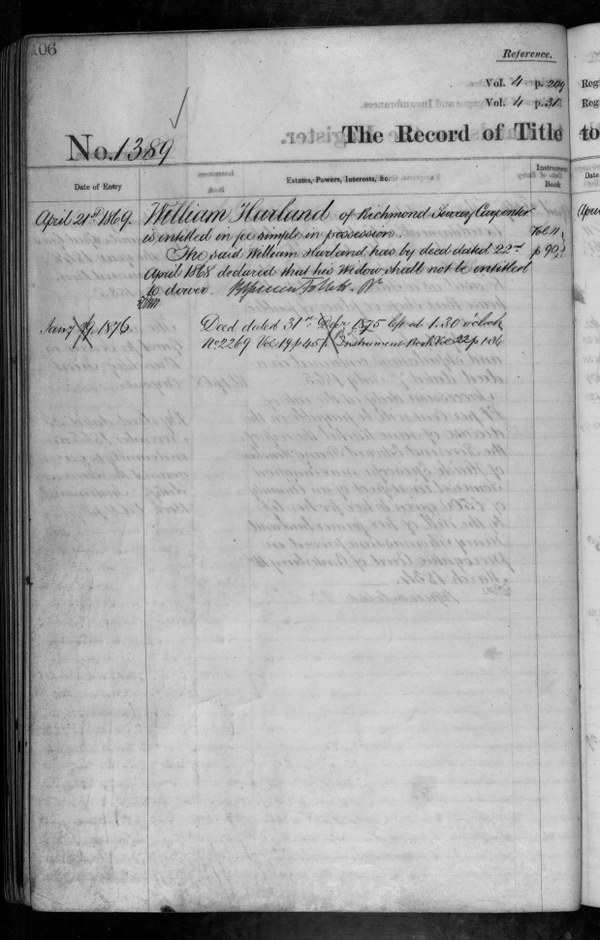 106
Reference.
Vol. 4 p. 209
Vol. 4 p. 31
No. 1389
The Record of Title to
Date of Entry
Estates, Powers, Interests, &c.
Instrument Book
April 21st 1869.
William Harland of Richmond Surrey Carpenter
is entitled in fee simple in possession.
Vol. 11
The said William Harland has by deed dated 22nd
p 90
April 1868 declared that his Widow shall not be entitled
to dower.
Jany 19 1876
Deed dated 31st 1875 left at 1.30 o'clock
No 2269 Vol 19 p 45 Instrument Book Vol 22 p 136
Regi
Regi
Date